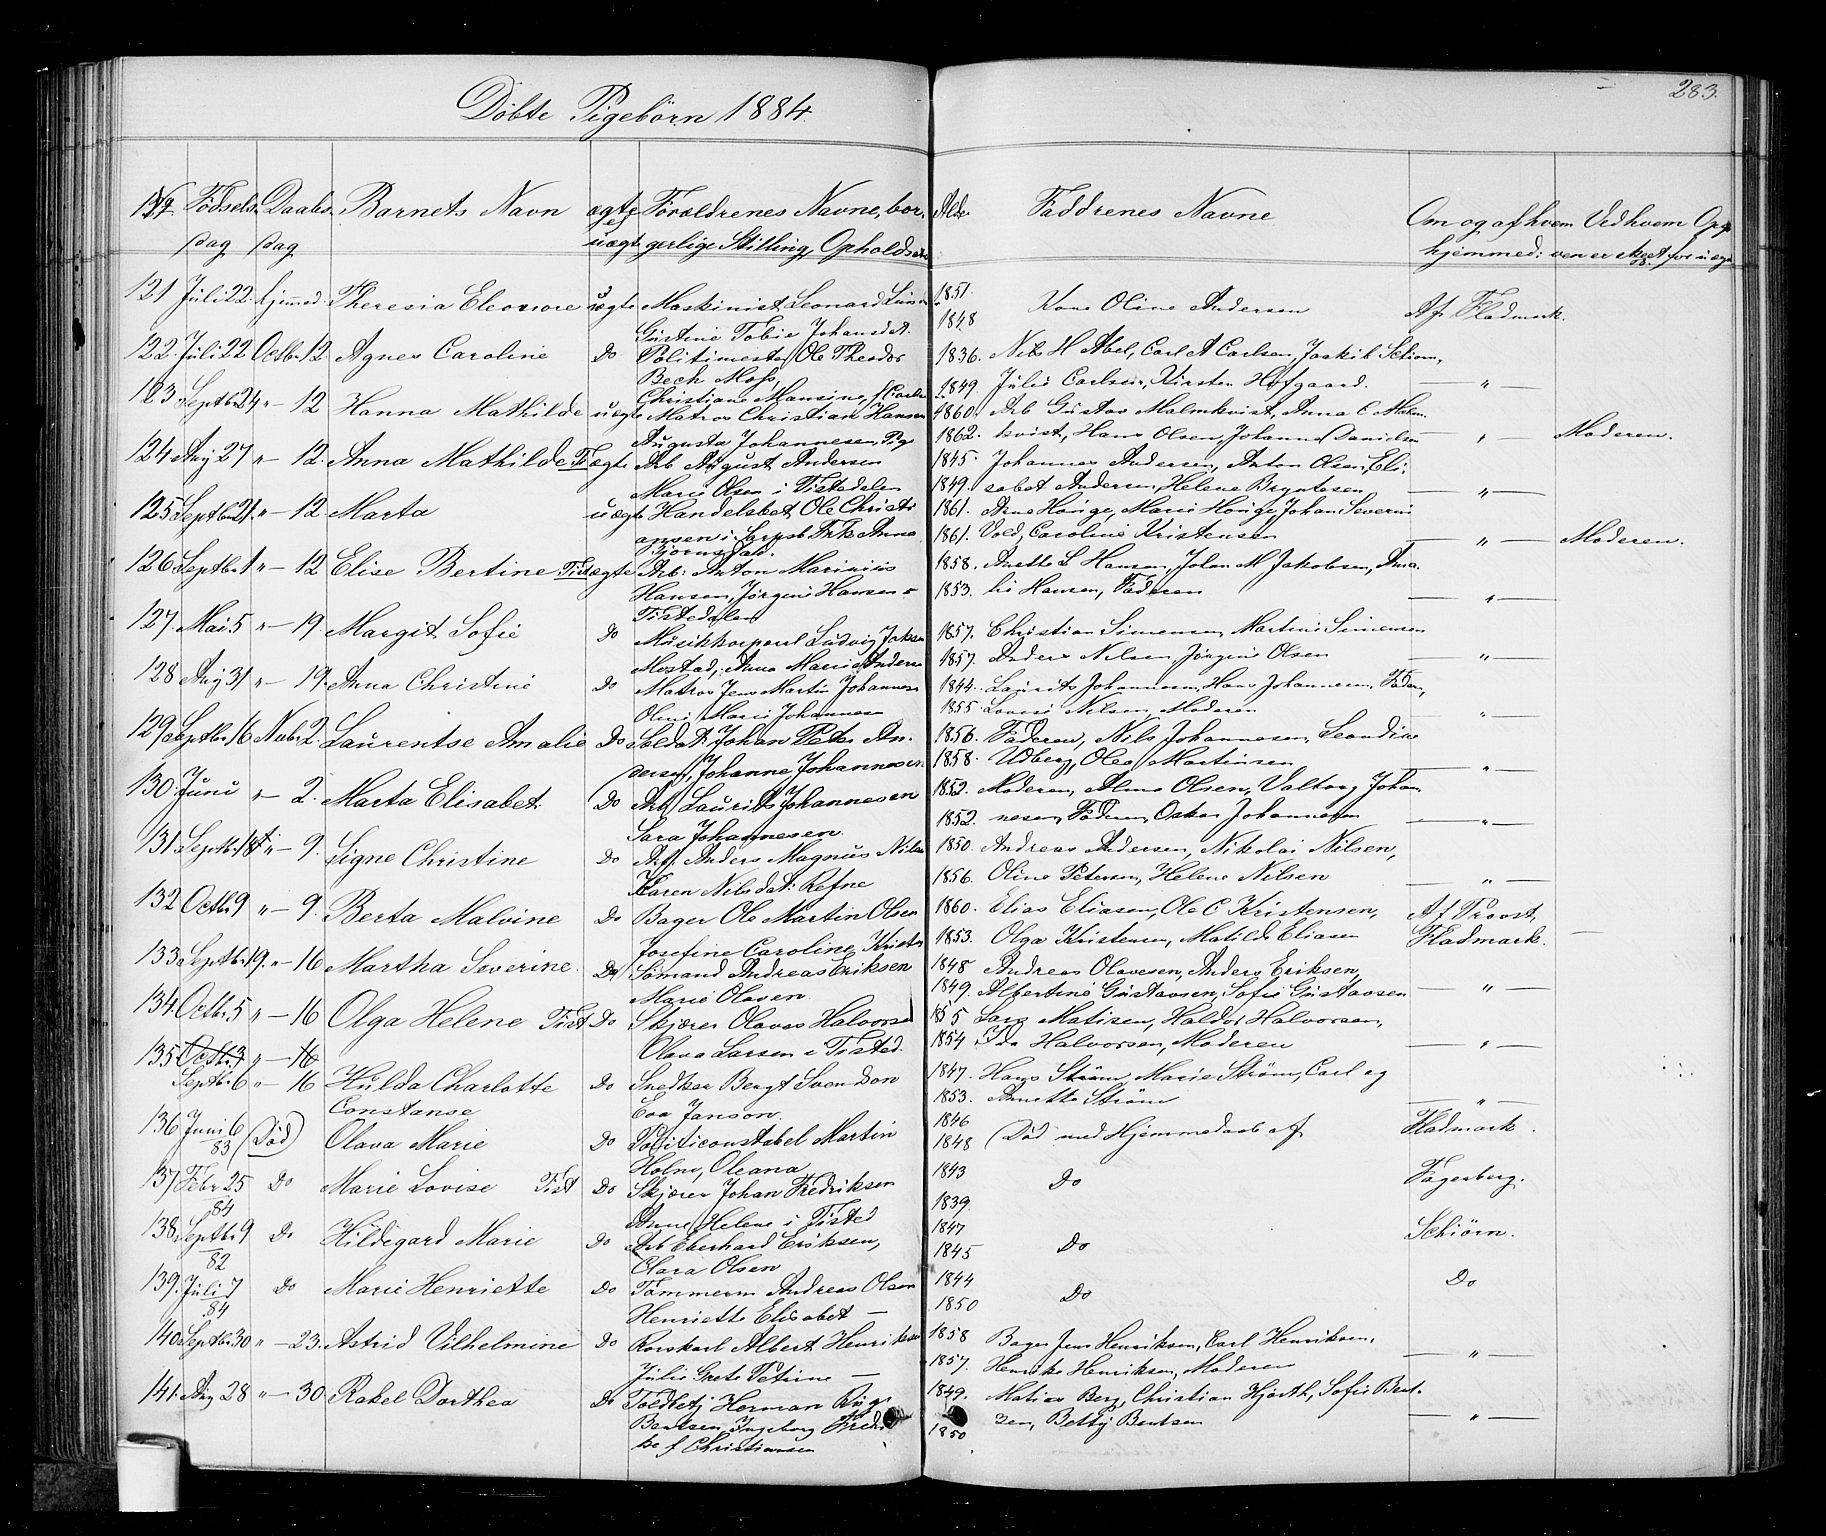 283.
Döbte Pigebörn 1884
No Födsels Daabs Barnets Navn ægte Forældrenes Navne, bor- Alder Faddrenes Navne Om og af hvem Ved hvem Op-
dag dag uægt gerlige Stilling, Opholds hjemmed:
121 Juli 22. hjemmed. Theresia Eleonore uægte Maskinist Leonard 1851. Kone Oline Andersen Af Fladmark.
Gustine Tobie 1848
122. Juli 22 Octbr 12. Agnes Caroline Do Politimester Ole Theodor 1836. Nils H Abel, Carl A Carlsen,
Bech Moss, 1849 Julie Carlsen, Kirsten Hofgaard. — " —
Christiane Mansine f Carls
123 Septbr 24 " — 12 Hanna Mathilde uægte Matros Christian Hansen 1860. Arb Gustav Malmkvist, Anna C Malm-
Augusta Johannesen, Pig 1862. kvist, Hans Olsen, Johanne Danielsen — " — Moderen.
124 Aug 27 " — 12. Anna Mathilde Ti ægte Arb August Andersen 1845. Johannes Andersen, Anton Olsen, Eli-
Marie Olsen i Tistedalen 1849. sabet Andersen, Helene Bryntesen — " —
125 Septbr 21. " — 12. Marta uægte Handelsbet Ole Christi 1861. Arne Hauge, Marie Hauge, Johan Severin
ansen i Sarpsb Frk Anna 1861. Vold, Caroline Kristensen — " — Moderen.
Bjornsdal.
126 Septbr 1 " — 12 Elise Bertine Tist ægte Arb: Anton Marinius 1858. Anette L Hansen, Johan M Jakobsen, Ama
Hansen, Jörgine Hansen 1853. li Hansen, Faderen — " —
Tistedalen
127. Mai 5 " — 19. Margit Sofie Do Musikkorporal Ludvig 1857. Christian Simensen, Martine Simensen
Mostad, Anna Marie Anders 1857. Anders Nilsen, Jörgine Olsen — " —
128 Aug 31 " — 19. Anna Christine Do Matros Jens Martin Johannes 1844. Laurits Johannesen, Hans Johannesen, Fader,
Oline Marie Johannesen 1855. Lovise Nilsen, Moderen — " —
129 Septbr 16 Novbr 2. Laurentse Amalie Do Soldat Johan Peter An- 1856. Faderen, Nils Johannesen, Leandine
dersen, Johanne Johannesen 1858. Udberg, Olea Martinsen — " —
130. Juni " — 2. Marta Elisabet. Do Arb Laurits Johannesen 1852. Moderen, Alma Olsen, Valborg Johan
Sara Johannesen 1852. nesen, Faderen, Oskar Johannesen — " —
131. Septbr 18 " — 9. Signe Christine Do Arb. Anders Magnus Nilsen 1850. Andreas Andersen, Nikolai Nilsen,
Karen Nilsdat: Refne 1856. Oline Petersen, Helene Nilsen — " —
132 Octbr 9 " — 9. Berta Malvine Do Bager Ole Martin Olsen 1860. Elias Eliasen, Ole C Kristensen, Af Provst,
Josefine Caroline Krist 1853. Olga Kristensen, Matilde Eliasen Fladmark.
133. Septbr 19. " — 16 Martha Severine. Do Sömand Andreas Eriksen 1848 Andreas Olavesen, Anders Eriksen,
Marie Olaven. 1849. Albertine Gustavsen, Sofie Gustavsen — " —
134. Octbr 5 " — 16 Olga Helene Tist Do Skjærer Olaves Halvorse 1855 Lars Matisen, Haldor Halvorsen,
Olava Larsen i Tisted. 1854 Ida Halvorsen, Moderen — " —
135 Octbr 3 " — 16
Septbr 6 " — 16 Hulda Charlotte Do Snedker Bengt Svendson 1847. Hans Ström, Marie Ström, Carl og
Constanse Eva Janson. 1853. Annette Ström — " —
136 Juni 6 (Död) Olava Marie Do Politiconstabel Martin 1846 (Död med Hjemmedaab af Fladmark.
83 Holm, Oleana 1848
137 Febr 25 Do Marie Lovise Tist Do Skjærer Johan Fredriksen 1843 Do Fagerberg.
84 Anne Helene i Tisted 1839.
138. Septbr 9 Do Hildegard Marie Do Arb Eberhard Eriksen, 1847 Schiörn.
82 Clara Olsen 1845 Do
139. Juli 7 Do Marie Henriette Do Tömmerm Andreas Olsen 1844 Do
84 Henriette Elisabet — 1850 Do
140 Septbr 30 " — 23. Astrid Vilhelmine Do Rorskarl Albert Henriksen 1858 Bager Jens Henriksen, Carl Henriksen,
Julie Grete Petrine — 1857. Henrikke Henriksen, Moderen — " —
141. Aug 28 " — 30. Rakel Dorthea Do Toldbetj Herman 1849. Matias Berg, Christian Hjorth, Sofie Bent-
Berntsen, Ingeborg Fredrik 1850 zen, Betty Bentsen — " —
ke f Christiansen